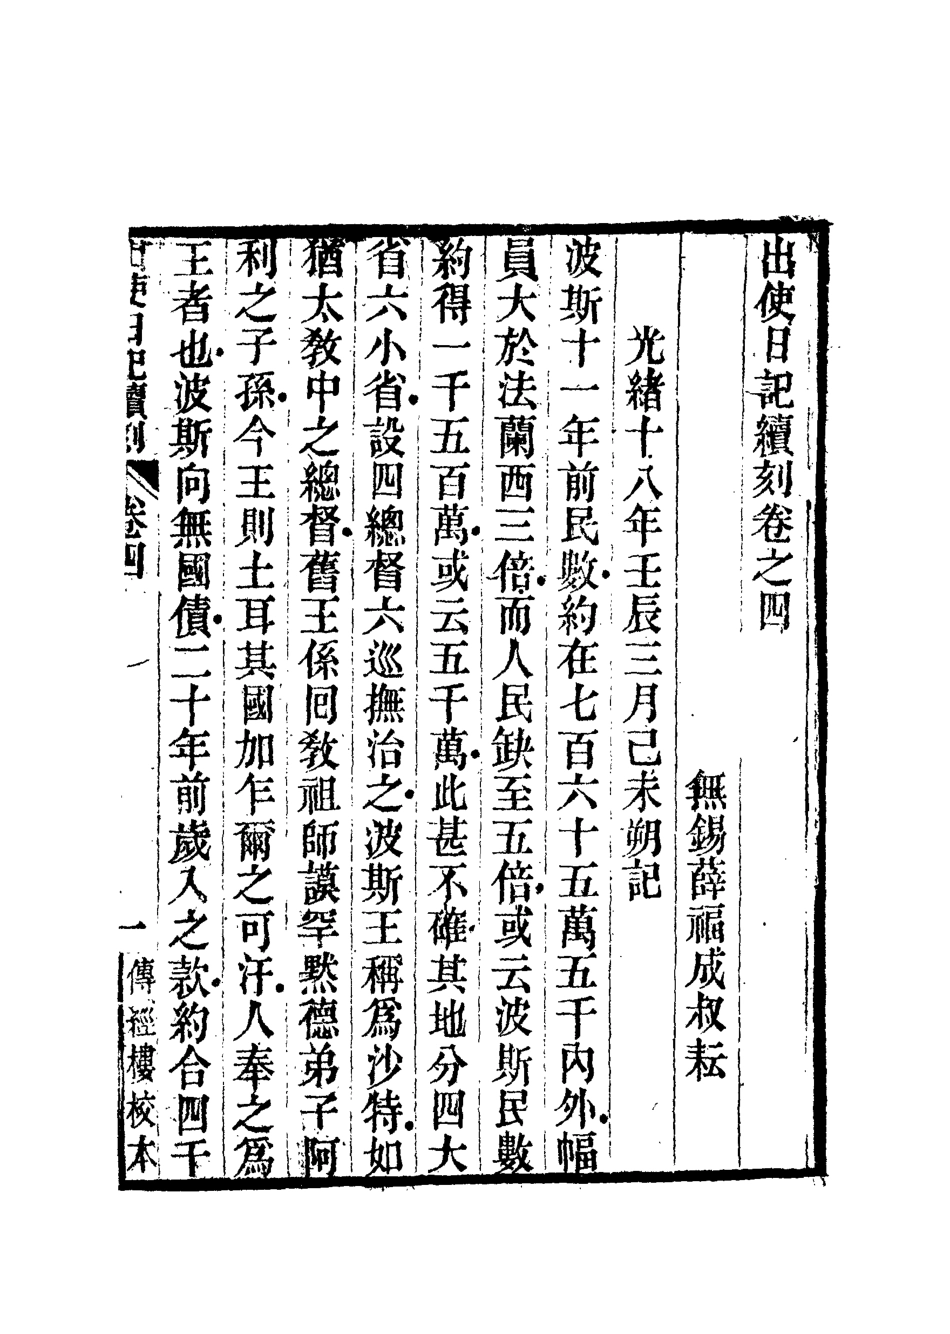 出使日記續刻卷之四
無錫薛福成叔耘
光緒十八年壬辰三月己未朔記
波斯十一年前民數約在七百六十五萬五千內外幅
員大於法蘭西三倍而人民缺至五倍或云波斯民數
約得一千五百萬或云五千萬此甚不確其地分四大
省六小省設四總督六巡撫治之波斯王稱爲沙特如
猶太教中之總督舊王係囘教祖師謨罕默德弟子阿
利之子孫今王則土耳其國加乍爾之可汗人奉之爲
王者也波斯向無國債二十年前歲入之款約合四千
出使日記續刻 卷四 一 傳經樓校本